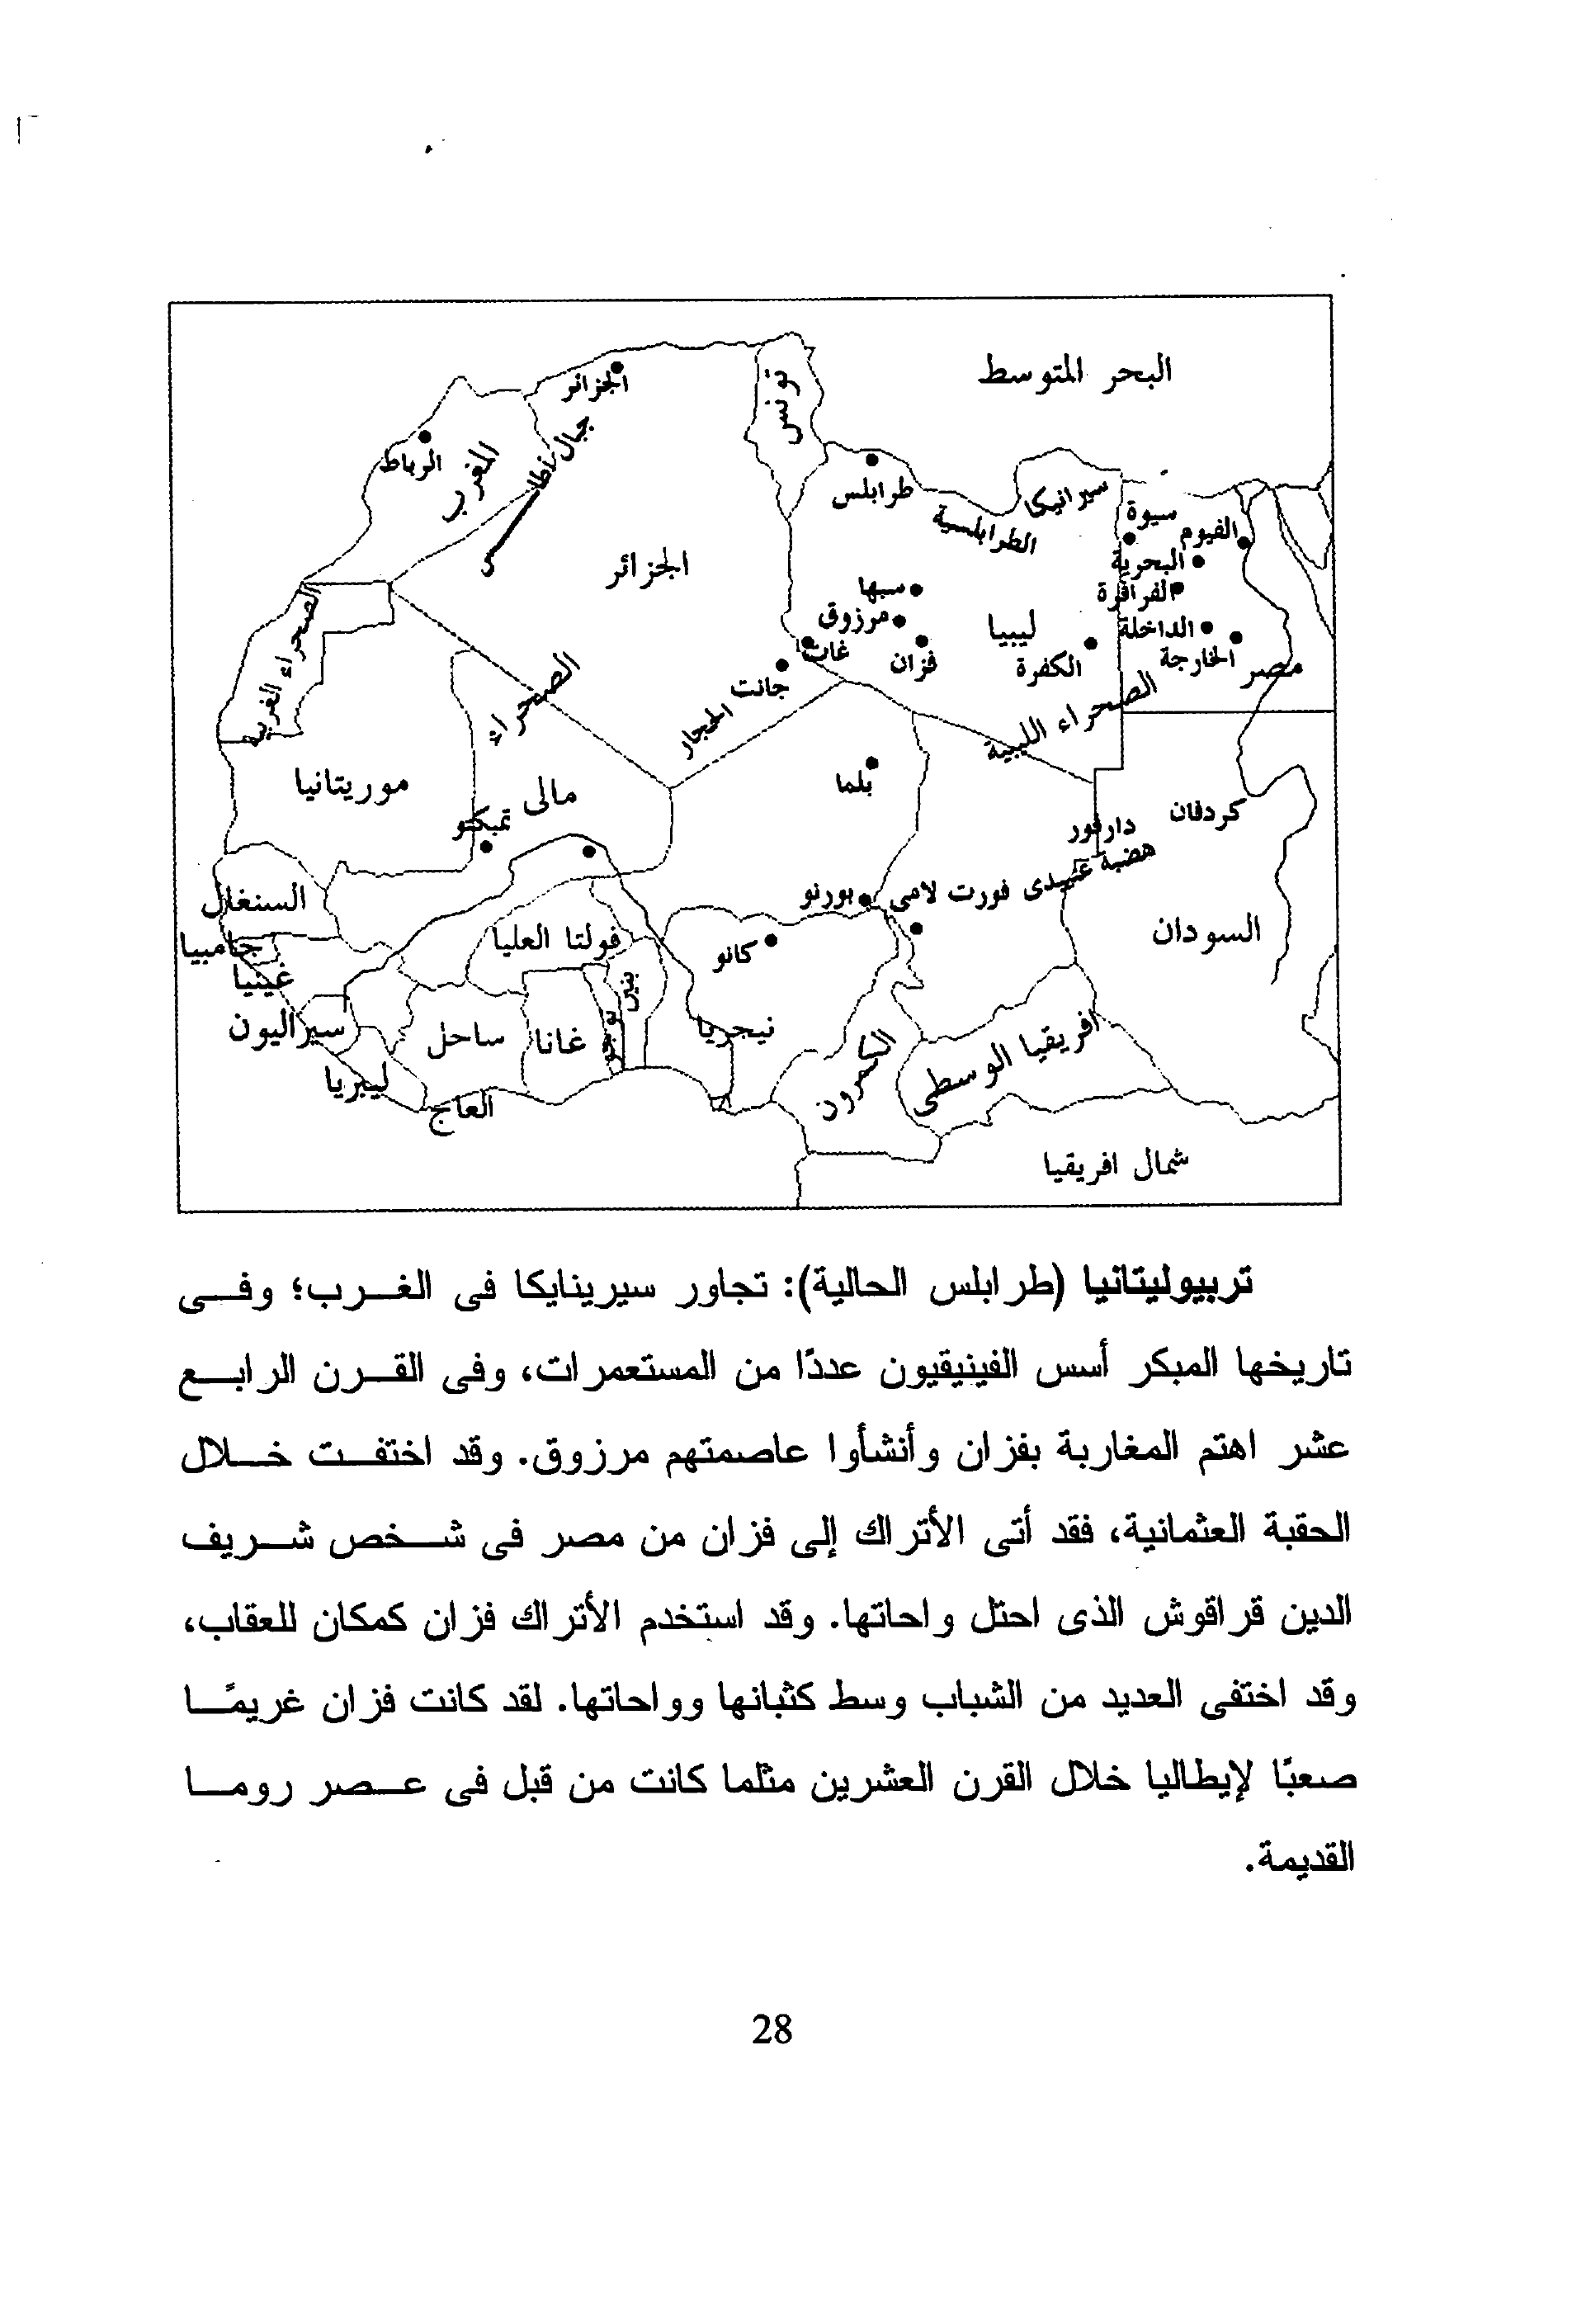 البحر المتوسط
الجزائر
تونس
جبال أطلس
الرباط
المغرب
طرابلس
سيرانيكا
الطرابلسية
سيوة
الفيوم
البحرية
الفرافرة
الداخلة
الخارجة
مصر
الجزائر
سبها
مرزوق
غات
فزان
ليبيا
الكفرة
جانت
الحجار
الصحراء
الصحراء الليبية
الصحراء الغربية
موريتانيا
مالى
تمبكتو
بلما
كردفان
دارفور
هضبة
فورت لامى
بورنو
السودان
السنغال
جامبيا
غينيا
سيراليون
ليبريا
ساحل
العاج
فولتا العليا
غانا
توجو
بنين
كانو
نيجريا
الكمرون
افريقيا الوسطى
شمال افريقيا
تريبوليتانيا (طرابلس الحالية): تجاور سيرينايكا فى الغرب؛ وفى
تاريخها المبكر أسس الفينيقيون عددًا من المستعمرات، وفى القرن الرابع
عشر اهتم المغاربة بفزان وأنشأوا عاصمتهم مرزوق. وقد اختفت خلال
الحقبة العثمانية، فقد أتى الأتراك إلى فزان من مصر فى شخص شريف
الدين قراقوش الذى احتل واحاتها. وقد استخدم الأتراك فزان كمكان للعقاب،
وقد اختفى العديد من الشباب وسط كثبانها وواحاتها. لقد كانت فزان غريمًا
صعبًا لإيطاليا خلال القرن العشرين مثلما كانت من قبل فى عصر روما
القديمة.
28